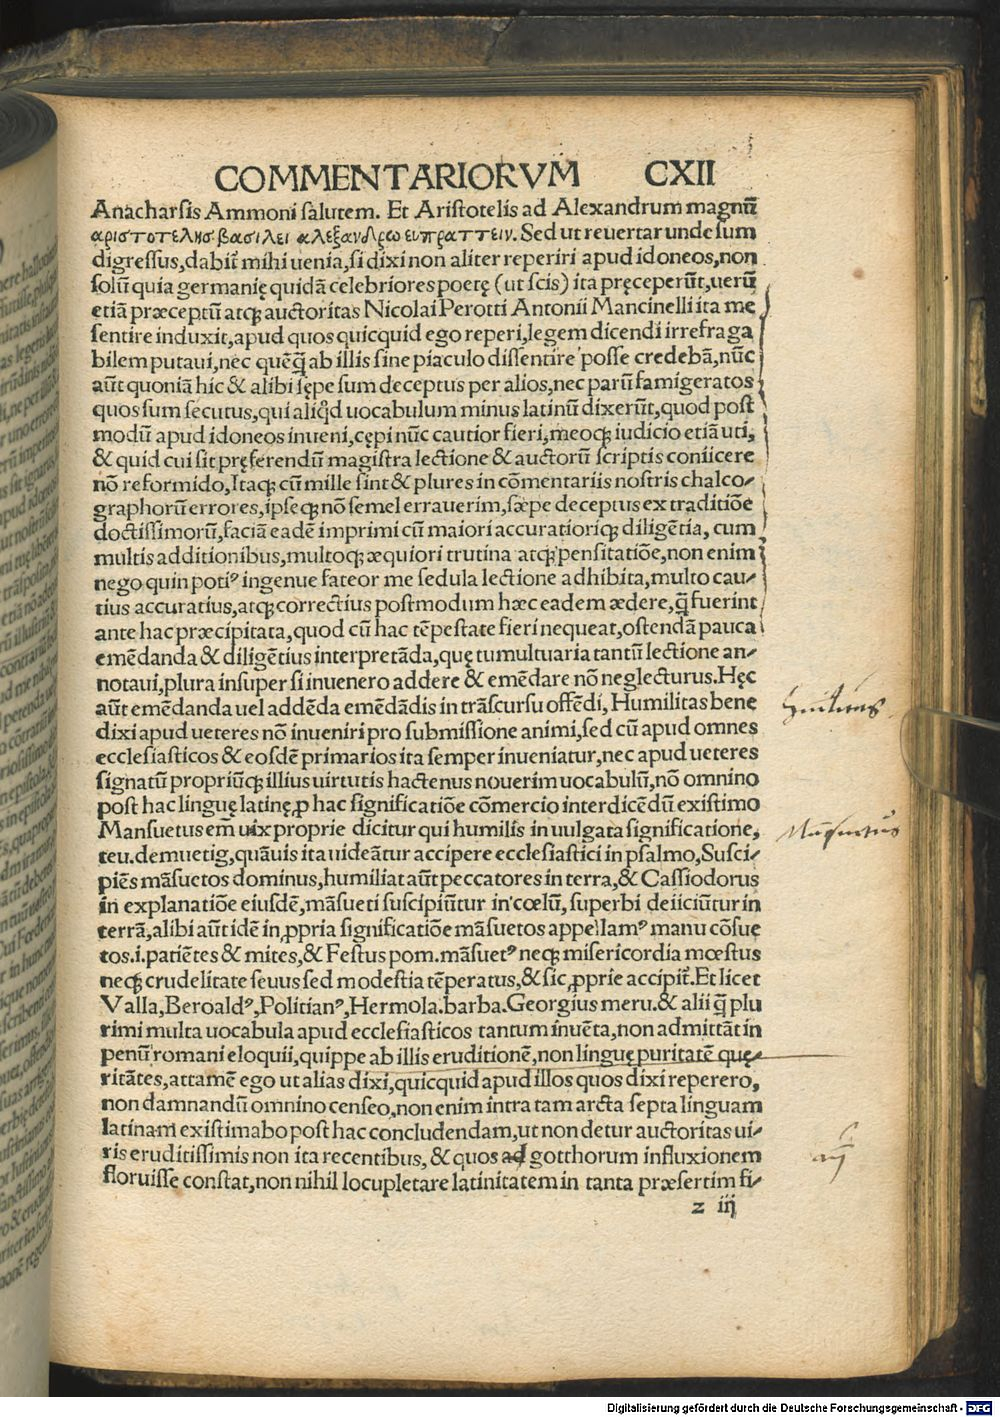 COMMENTARIORVM CXII
Anacharsis Ammoni salutem. Et Aristotelis ad Alexandrum magnū
αριστοτελησ βασιλει αλεξανδρω ευπραττειν. Sed ut reuertar unde sum
digressus, dabit̄ mihi uenia, si dixi non aliter reperiri apud idoneos, non
solū quia germanię quidā celebriores poetę (ut scis) ita pręceperūt, uerū
etiā præceptū atqꝫ auctoritas Nicolai Perotti Antonii Mancinelli ita me
sentire induxit, apud quos quicquid ego reperi, legem dicendi irrefraga
bilem putaui, nec quēq̄ ab illis sine piaculo dissentire posse credebā, nūc
aūt quoniā hic & alibi sępe sum deceptus per alios, nec parū famigeratos
quos sum secutus, qui aliqd uocabulum minus latinū dixerūt, quod post
modū apud idoneos inueni, cępi nūc cautior fieri, meoqꝫ iudicio etiā uti,
& quid cui sit pręferendū magistra lectione & auctorū scriptis coniicere
nō reformido, Itaqꝫ cū mille sint & plures in cōmentariis nostris chalco⸗
graphorū errores, ipseqꝫ nō semel errauerim, sæpe deceptus ex traditiōe
doctissimorū, faciā eadē imprimi cū maiori accuratioriqꝫ diligētia, cum
multis additionibus, multoqꝫ æquiori trutina atqꝫ pensitatiōe, non enim
nego quin potiꝰ ingenue fateor me sedula lectione adhibita, multo cau⸗
tius accuratius, atqꝫ correctius postmodum hæc eadem ædere, q̄ fuerint
ante hac præcipitata, quod cū hac tēpestate fieri nequeat, ostendā pauca
emēdanda & diligētius interpretāda, quę tumultuaria tantū lectione an⸗
notaui, plura insuper si inuenero addere & emēdare nō neglecturus. Hęc
aūt emēdanda uel addēda emēdādis in trāscursu offēdi, Humilitas bene
dixi apud ueteres nō inueniri pro submissione animi, sed cū apud omnes
ecclesiasticos & eosdē primarios ita semper inueniatur, nec apud ueteres
signatū propriūqꝫ illius uirtutis hactenus nouerim uocabulū, nō omnino
post hac linguę latinę, ꝓ hac significatiōe cōmercio interdicēdū existimo
Mansuetus em̄ uix proprie dicitur qui humilis in uulgata significatione,
teu. demuetig, quāuis ita uideātur accipere ecclesiastici in psalmo, Susci⸗
piēs māsuetos dominus, humiliat aūt peccatores in terra, & Cassiodorus
in explanatiōe eiusdē, māsueti suscipiūtur in cœlū, superbi deiiciūtur in
terrā, alibi aūt idē in ꝓpria significatiōe māsuetos appellamꝰ manu cōsue
tos .i. patiētes & mites, & Festus pom. māsuetꝰ neqꝫ misericordia mœstus
neqꝫ crudelitate seuus sed modestia tēperatus, & sic ꝓprie accipit̄. Et licet
Valla, Beroaldꝰ, Politianꝰ, Hermola. barba. Georgius meru. & alii q̄ plu
rimi multa uocabula apud ecclesiasticos tantum inuēta, non admittāt in
penū romani eloquii, quippe ab illis eruditionē, non linguę puritatē quę⸗
ritātes, attamē ego ut alias dixi, quicquid apud illos quos dixi reperero,
non damnandū omnino censeo, non enim intra tam arcta septa linguam
latinam existimabo post hac concludendam, ut non detur auctoritas ui⸗
ris eruditissimis non ita recentibus, & quos ad gotthorum influxionem
floruisse constat, non nihil locupletare latinitatem in tanta præsertim fi⸗
z iij
Digitalisierung gefördert durch die Deutsche Forschungsgemeinschaft - DFG